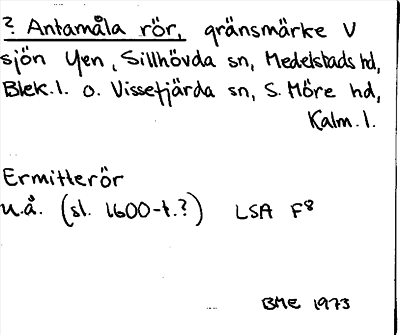 ? Antamåla rör, gränsmärke V
sjön Yen, Sillhövda sn, Medelstads hd,
Blek.l. o. Vissefjärda sn, S. Möre hd,
Kalm.l.
Ermitterör
u.å. (sl. 1600-t.?) LSA F8
BME 1973